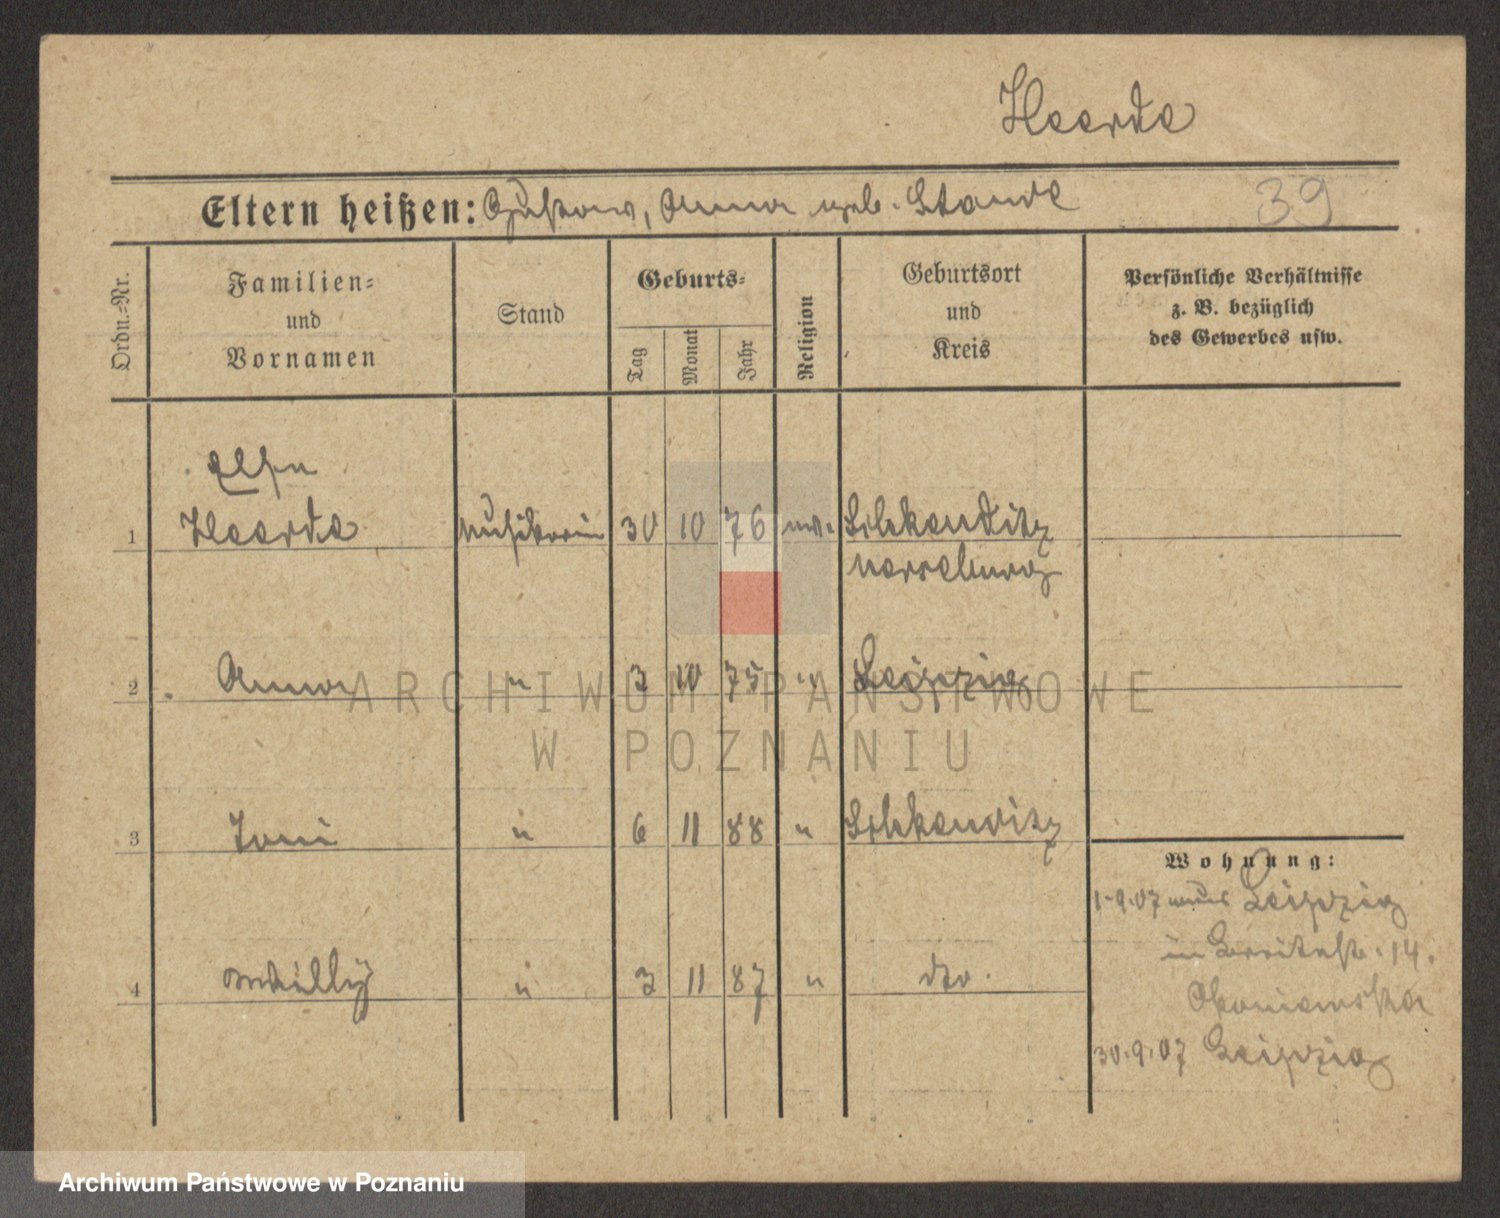 Heerde
Eltern heißen: Gustav, Anna geb. Staude
39
Ordn.=Nr.
Familien=
und
Vornamen
Stand
Geburts=
Tag
Monat
Jahr
Religion
Geburtsort
und
Kreis
Persönliche Verhältnisse
z. B. bezüglich
des Gewerbes usw.
1 Heerde Musikerin 30 10 76 ev. Schkeuditz
Merseburg
2 Anna " 3 10 75 " Leipzig
ARCHIWUM PAŃSTWOWE
W POZNANIU
3 Toni " 6 11 88 " Schkeuditz
4 Willy " 3 11 87 " dto.
Wohnung:
1.9.07 aus Leipzig
in Breitestr. 14.
30.9.07 Leipzig
Archiwum Państwowe w Poznaniu